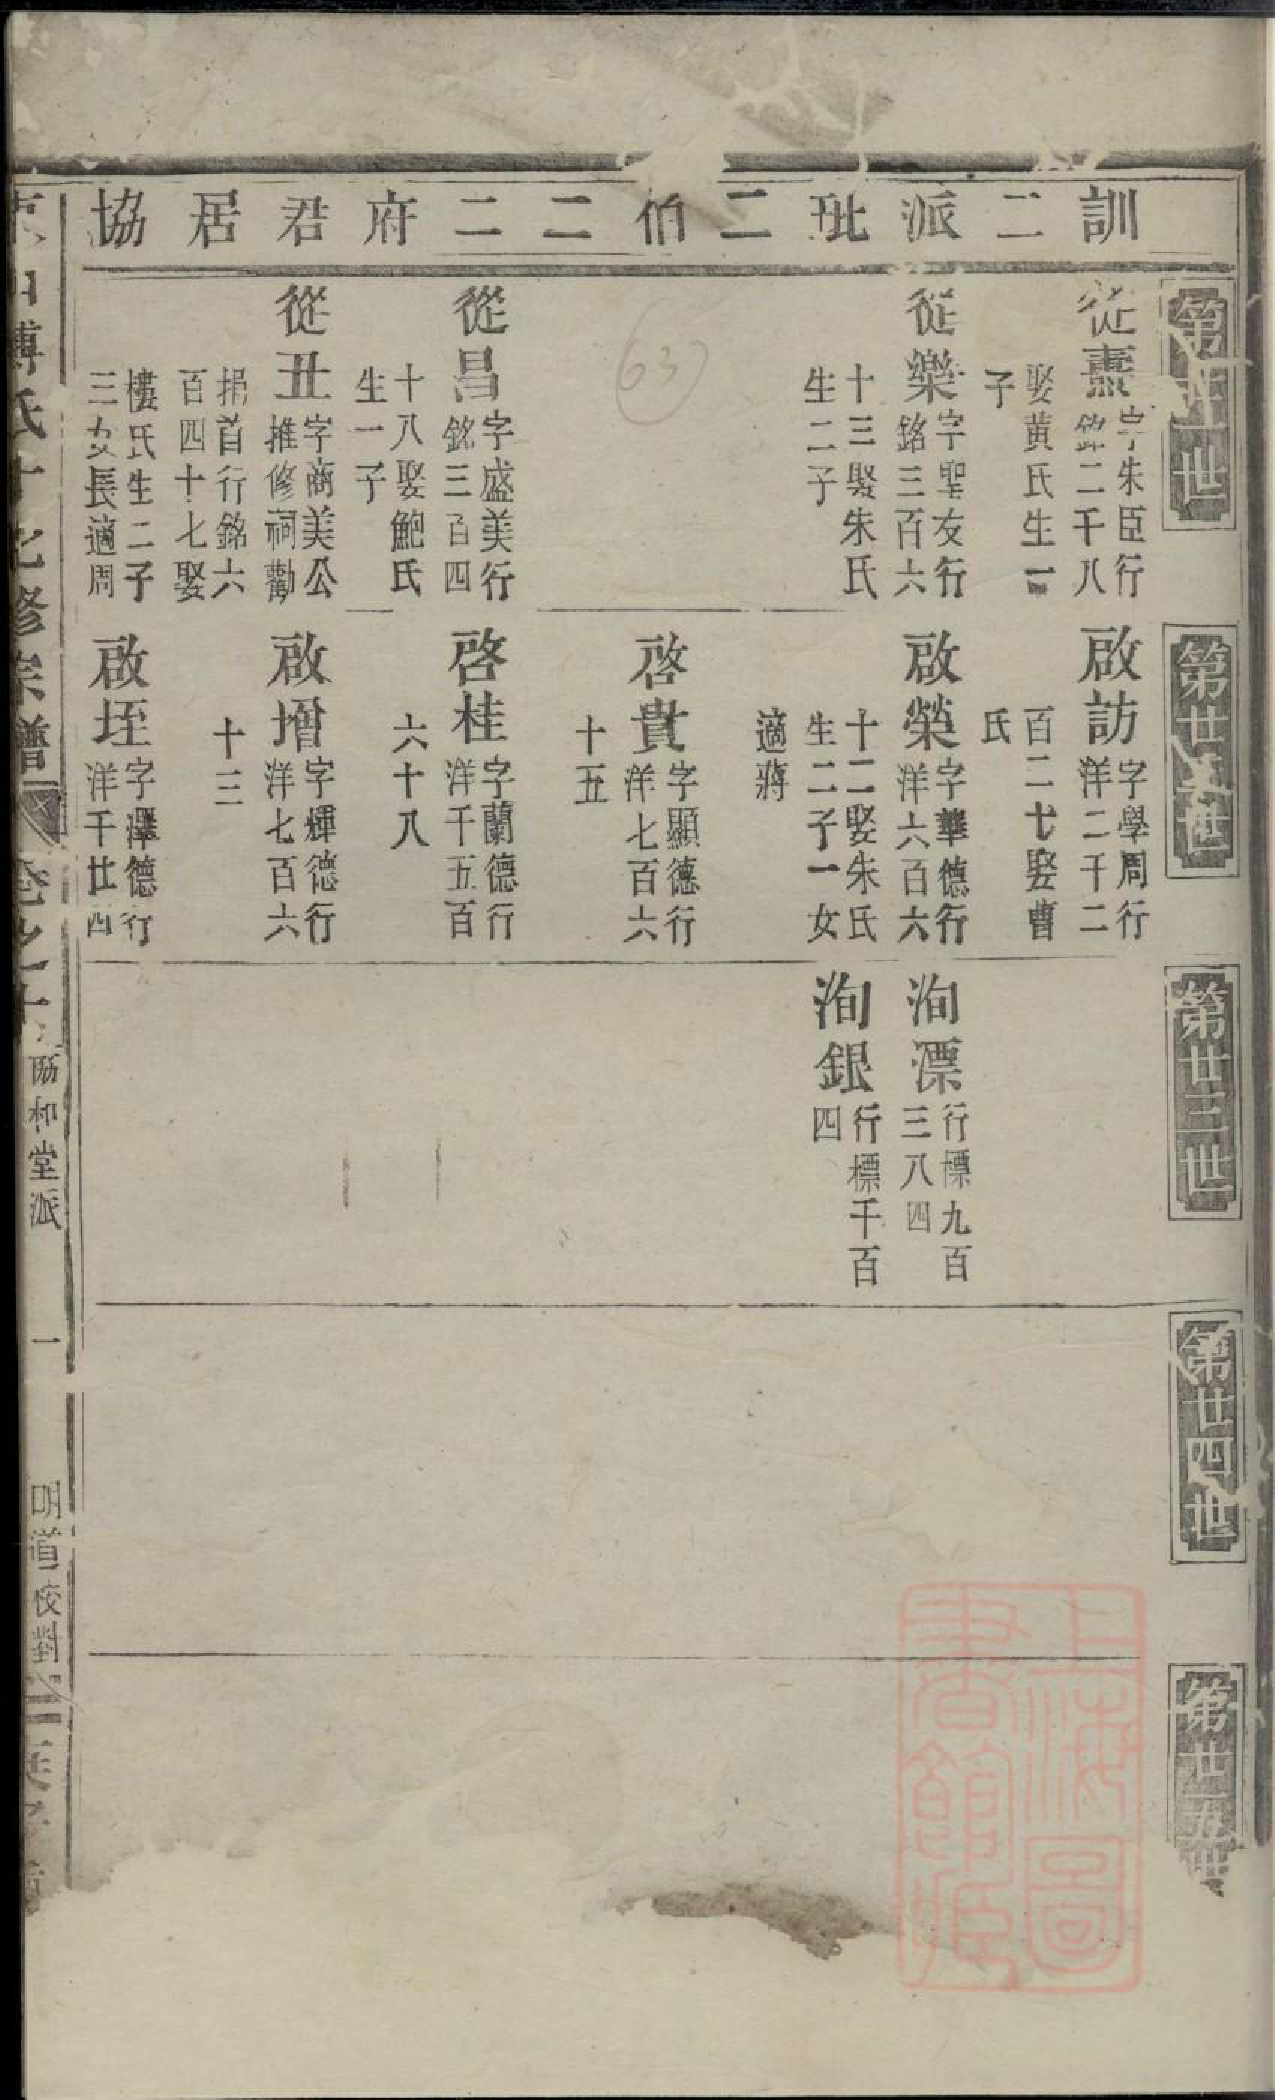 訓二派玭二伯二二府君居協
第廿一世
從燾字朱臣行銘二千八
娶黄氏生一子
從樂字聖友行銘三百六
十三娶朱氏生二子
從昌字盛美行銘三百四
十八娶鮑氏生一子
從丑字商美公推修祠勸
捐首行銘六百四十七娶
樓氏生二子三女長適周
第廿二世
啟訪字學周行洋二千二
百二七娶曹氏
啟榮字華德行洋六百六
十二娶朱氏生二子一女
適蔣
啓貴字顯德行洋七百六
十五
啓桂字蘭德行洋千五百
六十八
啟增字輝德行洋七百六
十三
啟垤字澤德行洋千廿四
第廿三世
洵漂行標九百三八四
洵銀行標千百四
第廿四世
第廿五世
傅氏十七修宗譜
卷之十
協和堂派
一
明道校對
上海圖書館藏
637